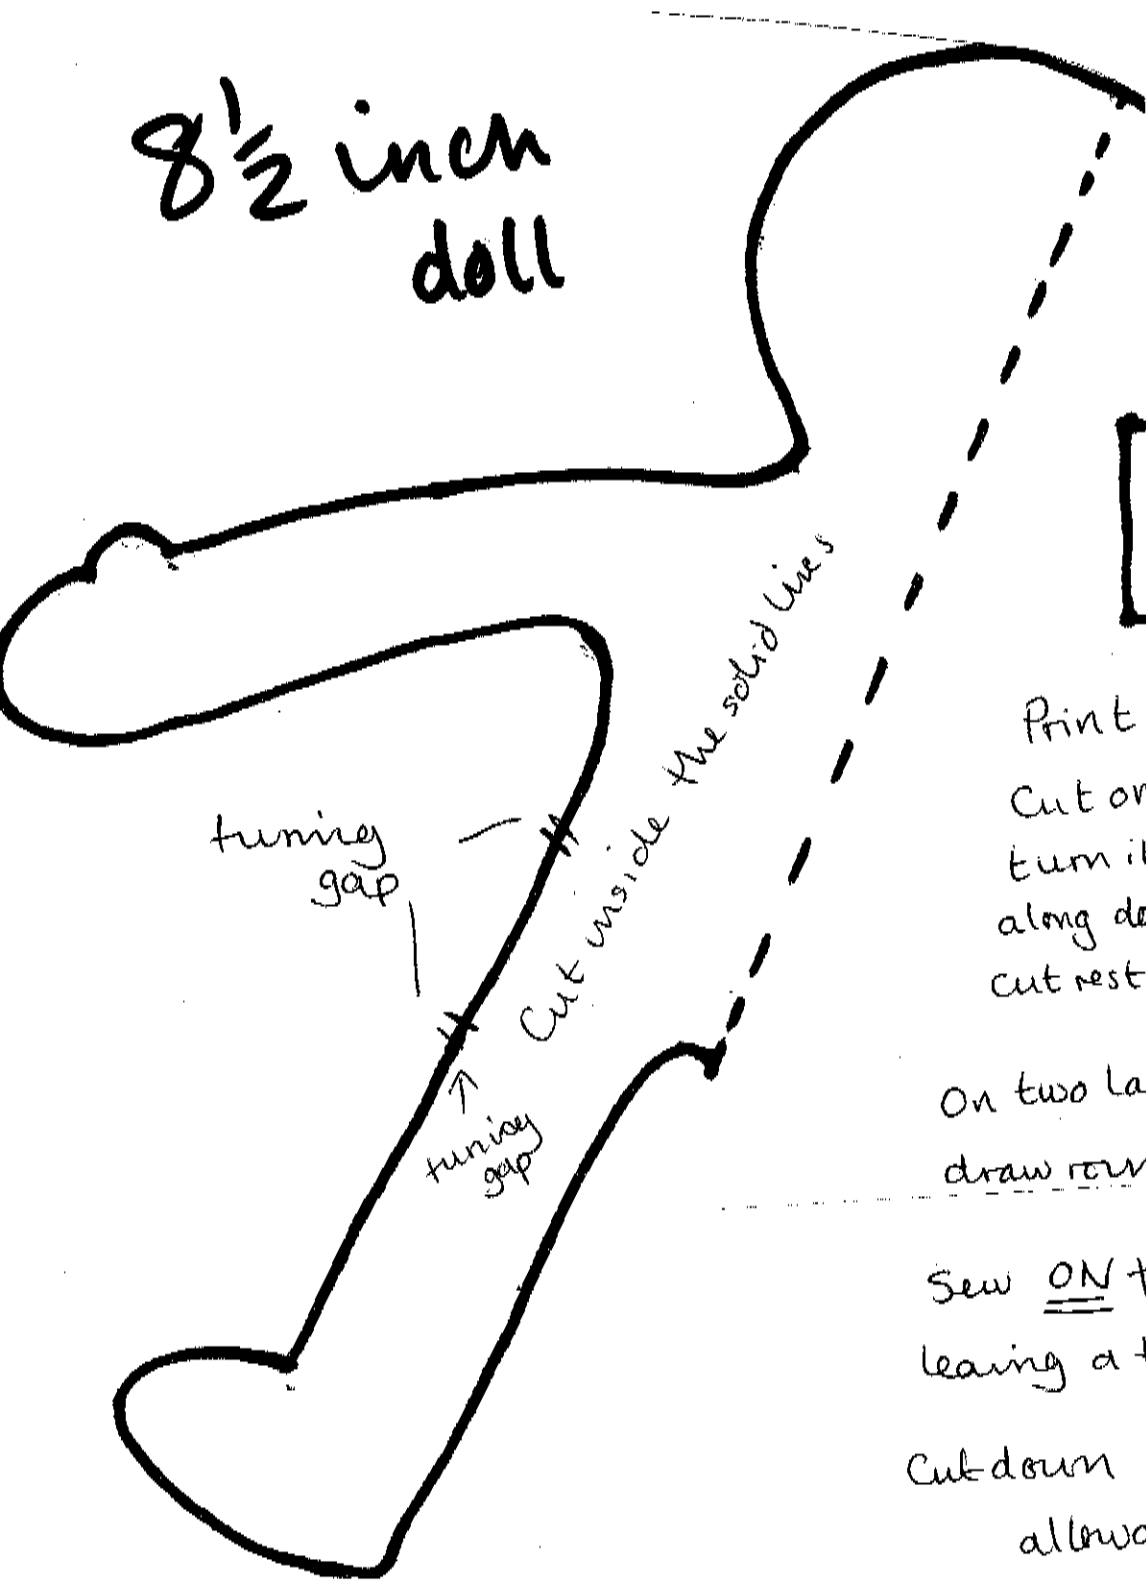 8½ inch
doll
Cut inside the solid lines
tuning
gap
tuning
gap
Print
Cut on
turn it
along do
cut rest
On two la
draw roun
Sew ON t
leaving a t
Cut down
allowa